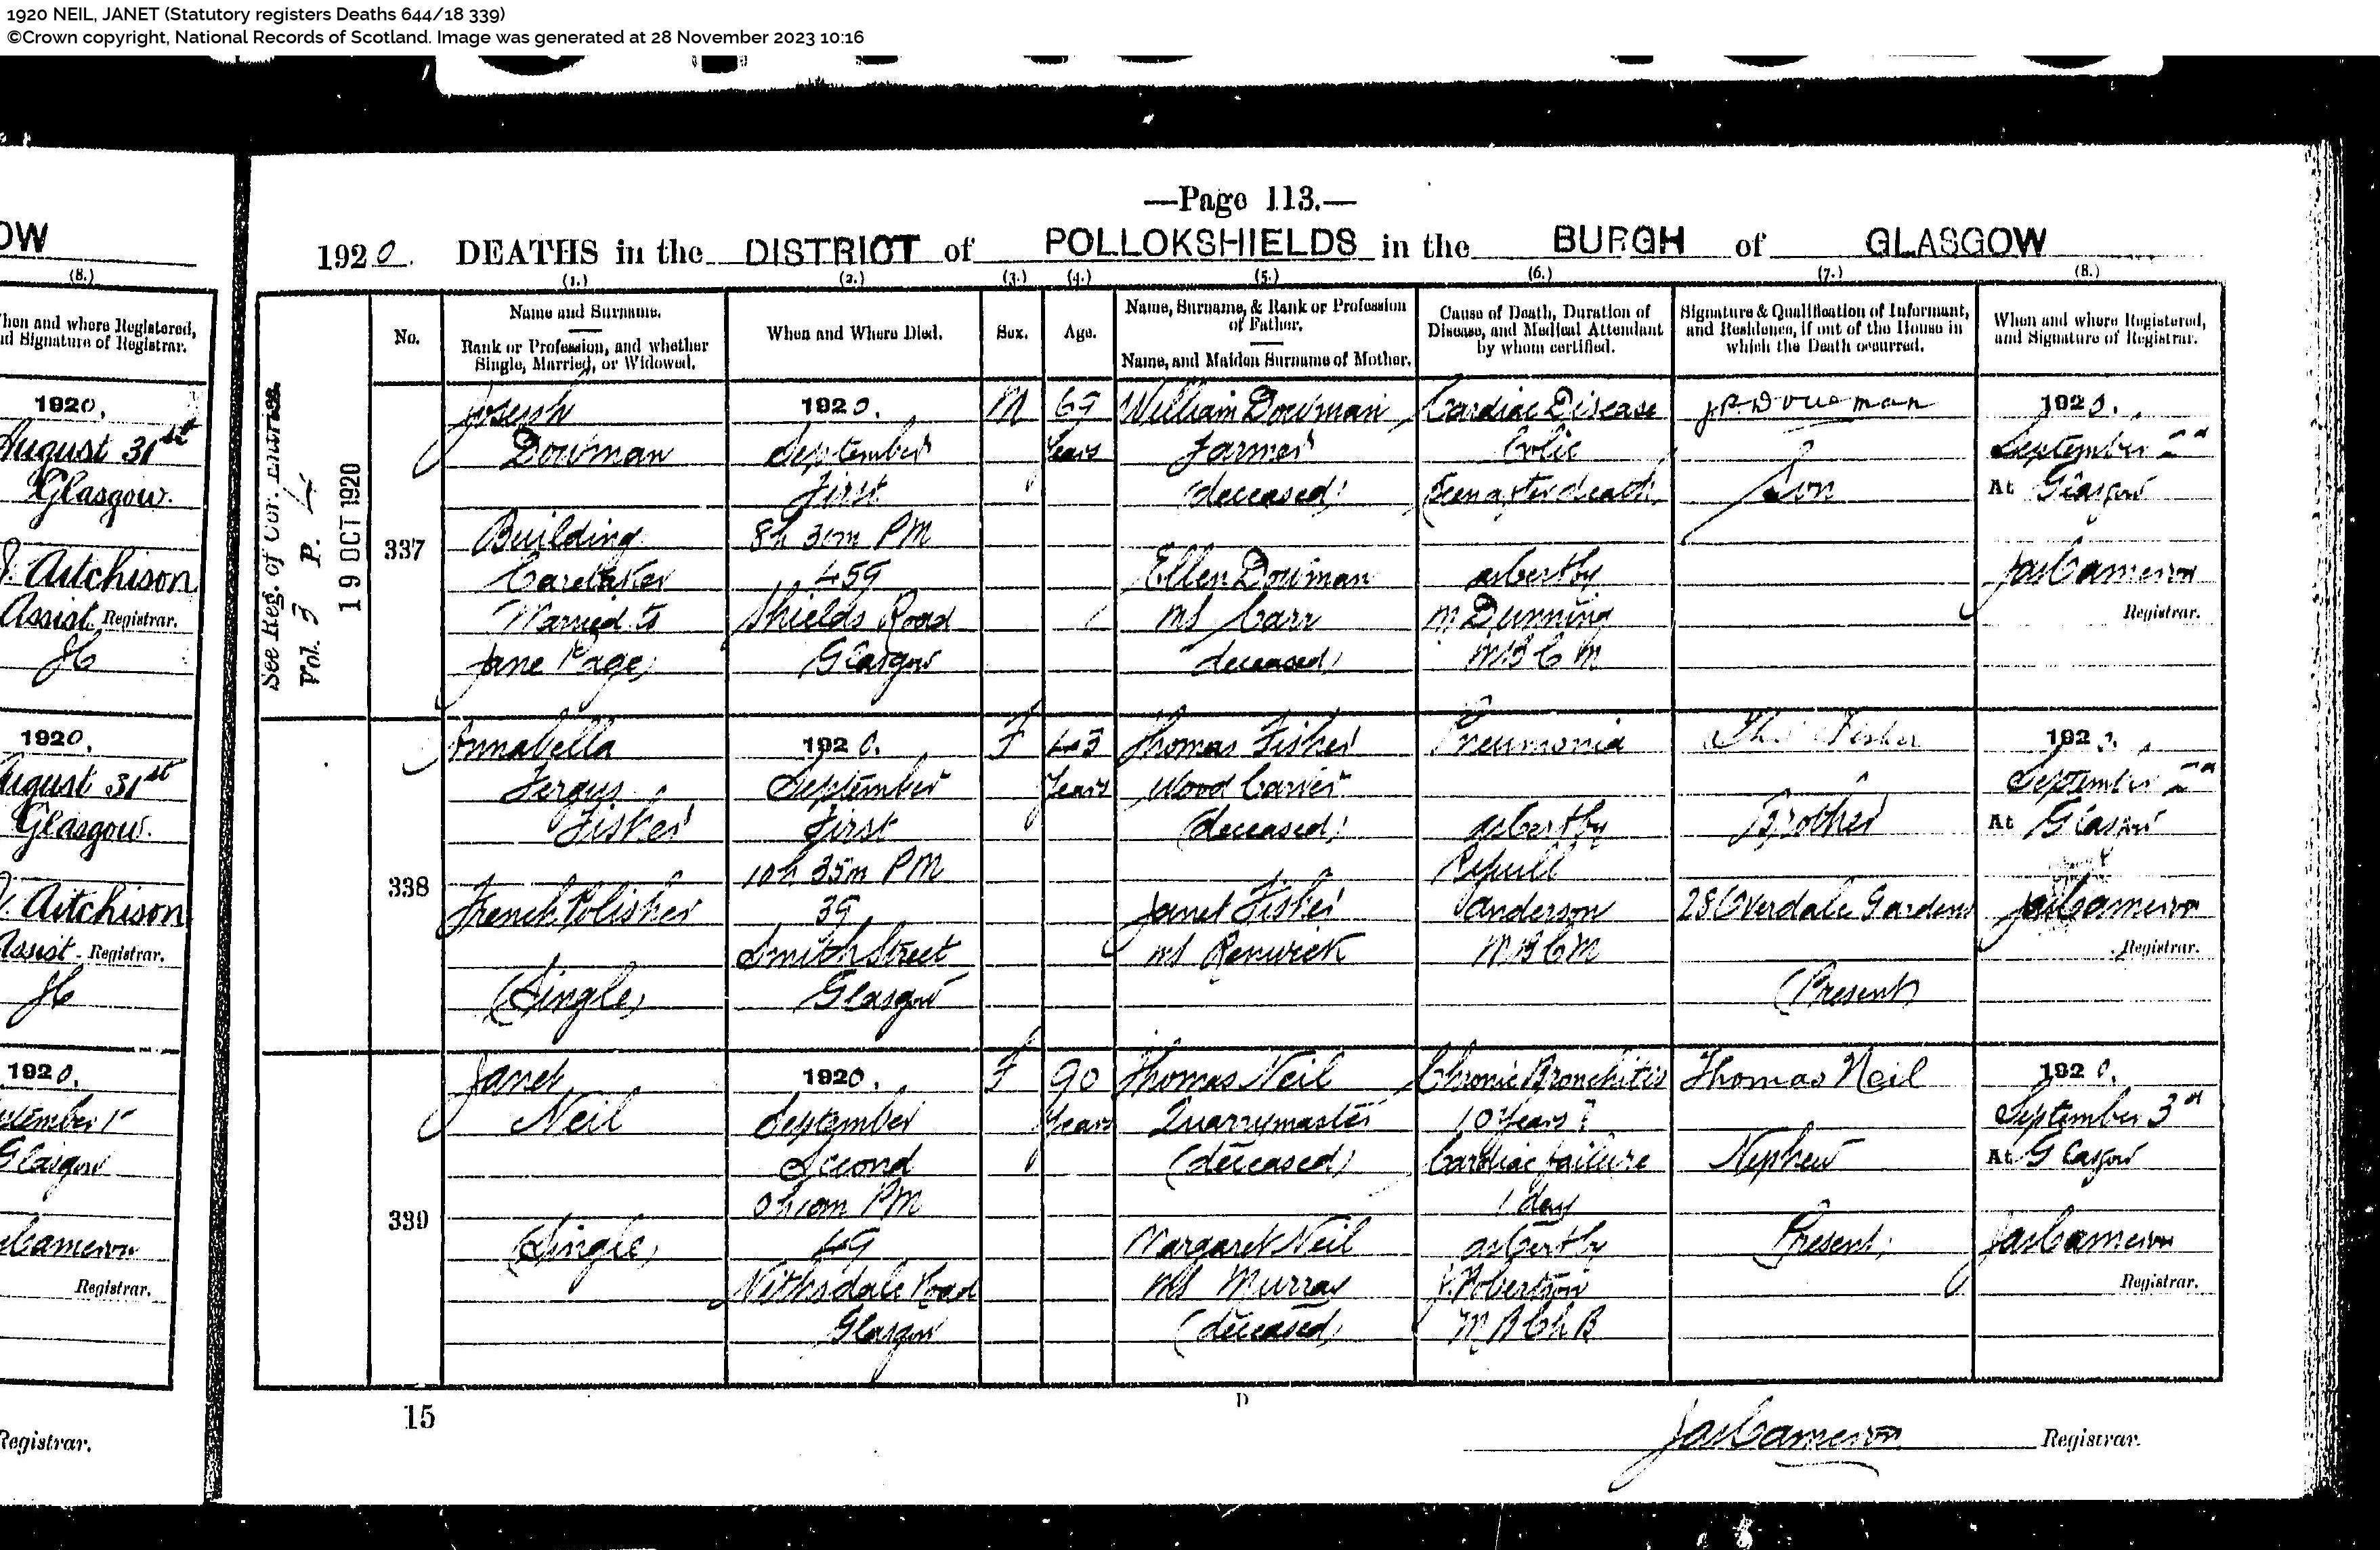 1920 NEIL, JANET (Statutory registers Deaths 644/18 339)
©Crown copyright, National Records of Scotland. Image was generated at 28 November 2023 10:16
—Page 113.—
1920. DEATHS in the DISTRICT of POLLOKSHIELDS in the BURGH of GLASGOW
(1.) (2.) (3.) (4.) (5.) (6.) (7.) (8.)
No.
Name and Surname.
Rank or Profession, and whether
Single, Married, or Widowed.
When and Where Died.
Sex.
Age.
Name, Surname, & Rank or Profession
of Father.
Name, and Maiden Surname of Mother.
Cause of Death, Duration of
Disease, and Medical Attendant
by whom certified.
Signature & Qualification of Informant,
and Residence, if out of the House in
which the Death occurred.
When and where Registered,
and Signature of Registrar.
See Reg. of Cor. Entries
Vol. 3 P. 4
19 OCT 1920
337
Joseph
Dowman
Building
Caretaker
Married to
Jane Page)
1920.
September
First
8h 30m PM
459
Shields Road
Glasgow
M
69
Years
William Dowman
Farmer
(deceased)
Ellen Dowman
MS Carr
(deceased)
Cardiac Disease
Colic
(Seen after death)
as Cert by
M Dunning
MB CM
Son
1920.
September
At Glasgow
Jas Cameron
Registrar.
338
Annabella
Fergus
Fisher
French Polisher
(Single)
1920.
September
First
10h 35m PM
39
Smith Street
Glasgow
F
43
Years
Thomas Fisher
Wood Carver
(deceased)
Janet Fisher
MS Renwick
Pneumonia
as Cert by
Anderson
MB CM
Fisher
Brother
28 Overdale Gardens
(Present)
1920.
September
At Glasgow
Jas Cameron
Registrar.
339
Janet
Neil
(Single)
1920.
September
Second
0h 10m PM
49
Nithsdale Road
Glasgow
F
90
Years
Thomas Neil
Quarrymaster
(deceased)
Margaret Neil
MS Murray
(deceased)
Chronic Bronchitis
10 Years?
Cardiac failure
1 day
as Cert by
J. Robertson
MB ChB
Thomas Neil
Nephew
(Present)
1920.
September 3rd
At Glasgow
Jas Cameron
Registrar.
15
D
Jas Cameron Registrar.
OW
(8.)
When and where Registered,
and Signature of Registrar.
1920.
August 31st
Glasgow.
Aitchison
Assist. Registrar.
JC
1920.
August 31st
Glasgow.
Aitchison
Assist. Registrar.
JC
1920.
September 1st
Glasgow
Cameron
Registrar.
Registrar.